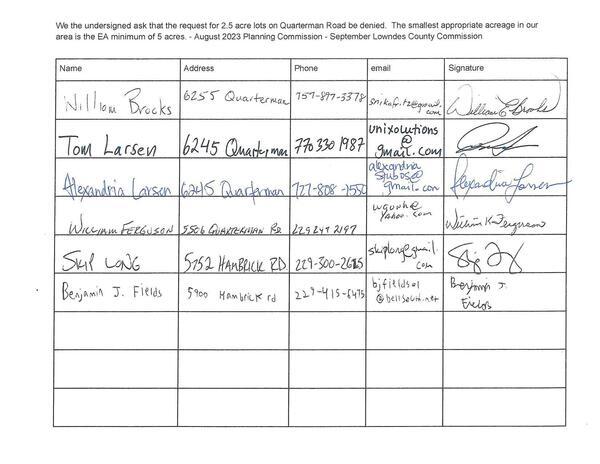 We the undersigned ask that the request for 2.5 acre lots on Quarterman Road be denied. The smallest appropriate acreage in our
area is the EA minimum of 5 acres. - August 2023 Planning Commission - September Lowndes County Commission
Name Address Phone email Signature
William Brooks 6255 Quarterman 757-897-3378 @gmail.com William E Brooks
Tom Larsen 6245 Quarterman 770 330 1987 unixolutions@gmail.com
Alexandria Larsen 6245 Quarterman 727-808-1550 alexandria @gmail.com Alexandria Larsen
William Ferguson 5506 Quarterman Rd 229 247 2197 @yahoo.com William K Ferguson
Skip Long 5752 Hambrick RD 229-300-2615 skiplong@gmail.com
Benjamin J. Fields 5900 Hambrick rd 229-415-6475 bjfields01@bellsouth.net Benjamin J. Fields